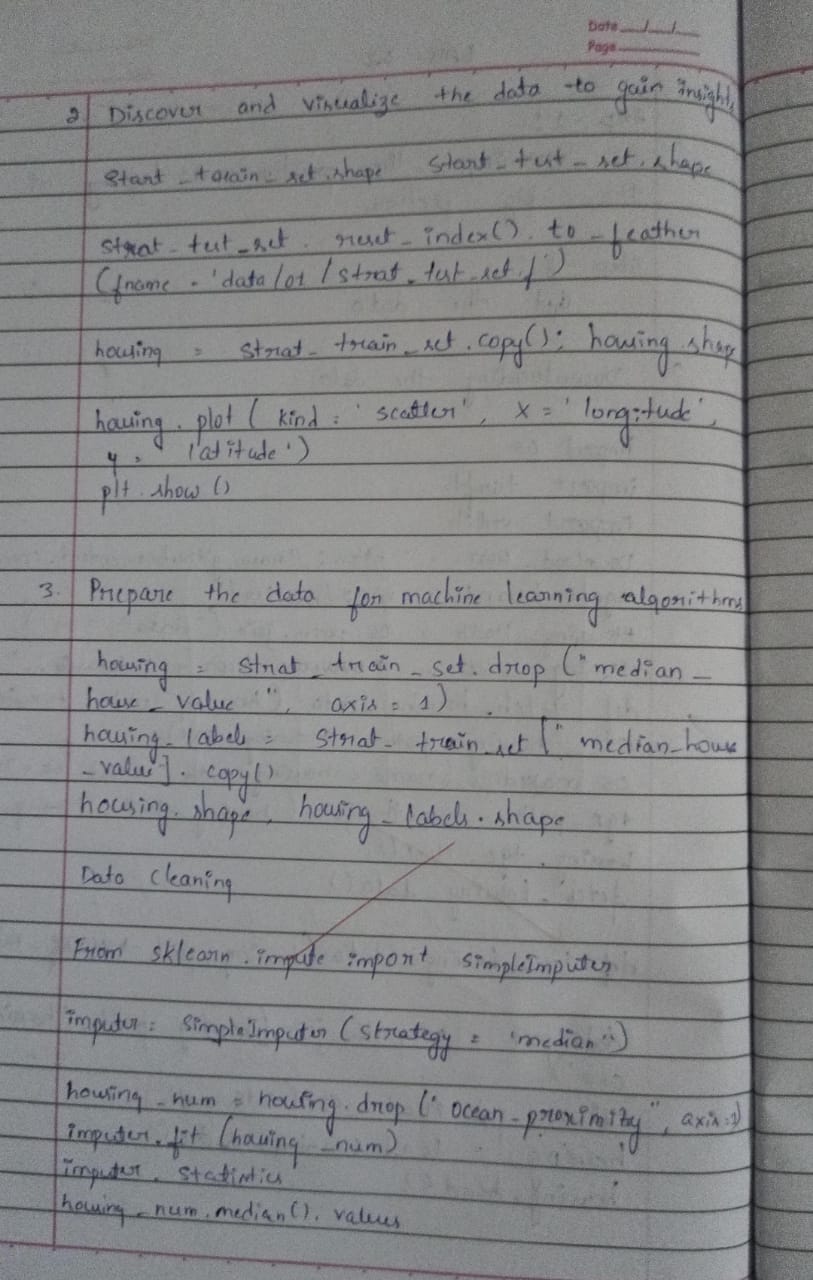 Date
Page
2 Discover and visualize the data to gain insights
Start_train_set.shape Start_test_set.shape
strat_test_set.reset_index().to_feather
(fname = 'data/01/strat_test_set.f')
housing = strat_train_set.copy(); housing.shape
housing.plot(kind = 'scatter', x = 'longitude',
y = latitude')
plt.show()
3. Prepare the data for machine learning algorithms
housing = strat_train_set.drop("median_
house_value", axis = 1)
housing_labels = strat_train_set["median_house
_value"].copy()
housing.shape, housing_labels.shape
Data Cleaning
From sklearn.impute import simpleImputer
imputer = simpleImputer(strategy = "median")
housing_num = housing.drop("ocean_proximity", axis=1)
imputer.fit(housing_num)
imputer.statistics
housing_num.median().values